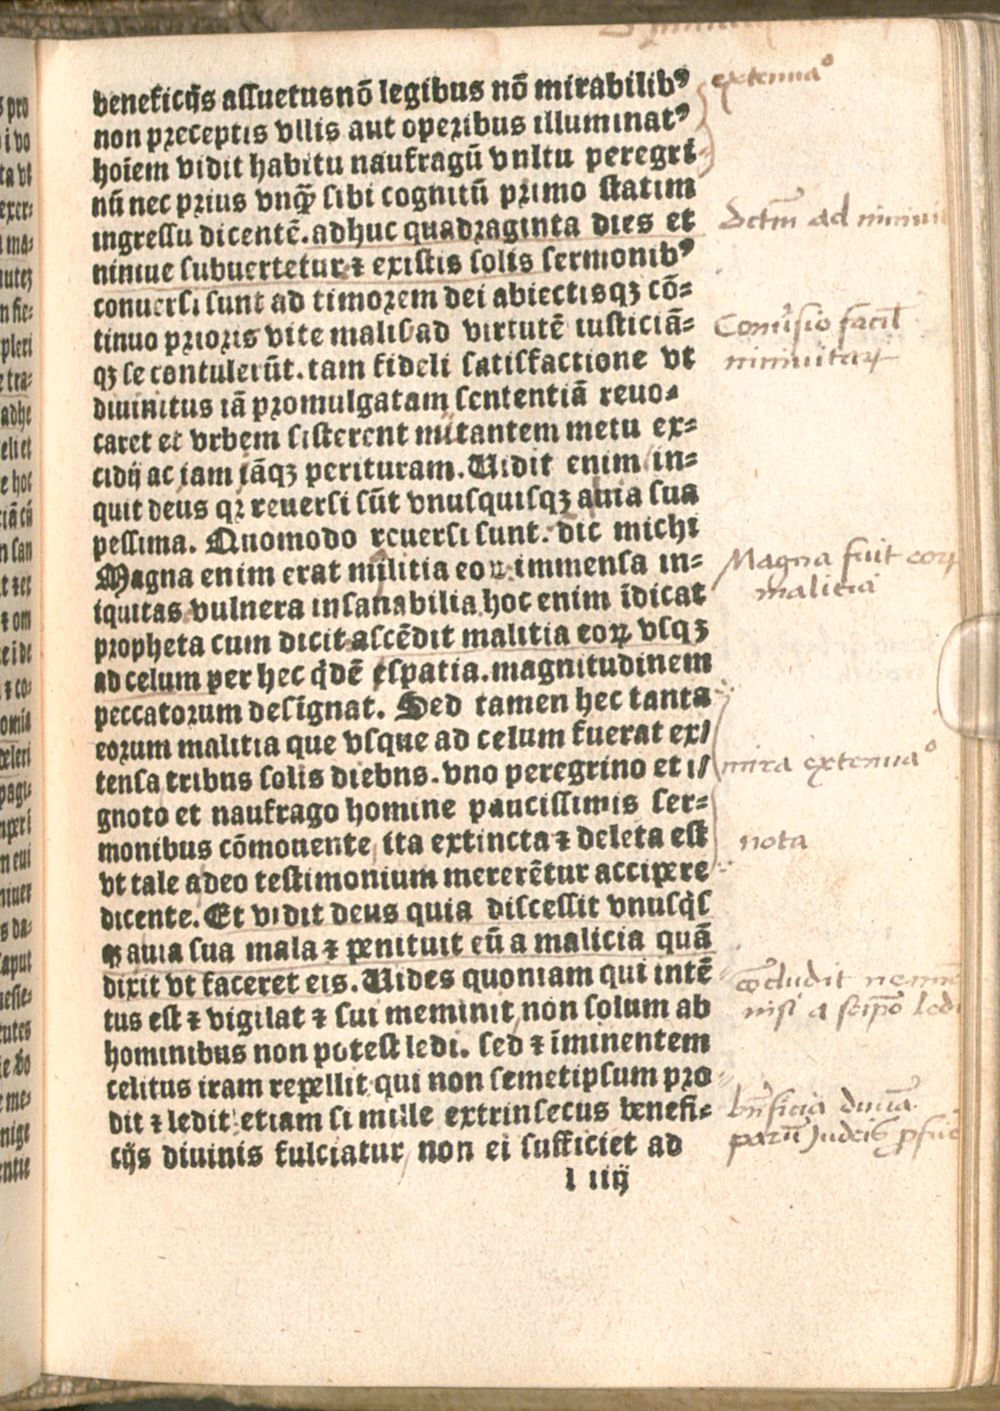 beneficijs assuetus nō legibus nō mirabilibꝰ
extenuaᵒ
non preceptis vllis aut operibus illuminatꝰ
hoīem vidit habitu naufragū vultu peregri
nū nec prius vnqͣ sibi cognitū primo statim
ingressu dicentē. adhuc quadraginta dies et
niniue subuertetur ⁊ existis solis sermonibꝰ
conuersi sunt ad timorem dei abiectisqꝫ cō-
Conuͥsio facil
tinuo prioris vite malis ad virtutē iusticiā-
niniuitaꝝ
qꝫ se contulerūt. tam fideli satisfactione vt
diuinitus iā promulgatam sententiā reuo-
caret et vrbem sisterent nutantem metu ex-
cidij ac iam iāqꝫ perituram. Uidit enim in-
quit deus qꝛ reuersi sūt vnusquisqꝫ a via sua
pessima. Quomodo reuersi sunt. dic michi
Magna enim erat militia eoꝝ immensa in-
Magna fuit eoꝝ
iquitas vulnera insanabilia hoc enim īdicat
malicia
propheta cum dicit ascēdit malitia eoꝝ vsqꝫ
ad celum per hec qͥdē spatia. magnitudinem
peccatorum designat. Sed tamen hec tanta
eorum malitia que vsque ad celum fuerat ex/
tensa tribus solis diebus. vno peregrino et i/
mira extenuaᵒ
gnoto et naufrago homine paucissimis ser-
monibus cōmonente ita extincta ⁊ deleta est
nota
vt tale adeo testimonium mererētur accipere
dicente. Et vidit deus quia discessit vnusqͥs
qꝫ a via sua mala ⁊ penituit eū a malicia quā
dixit vt faceret eis. Uides quoniam qui intē
tus est ⁊ vigilat ⁊ sui meminit non solum ab
nisi a seipo ledi
hominibus non potest ledi. sed ⁊ īminentem
celitus iram repellit qui non semetipsum pro
dit ⁊ ledit etiam si mille extrinsecus benefi-
cijs diuinis fulciatur non ei sufficiet ad
l iiij